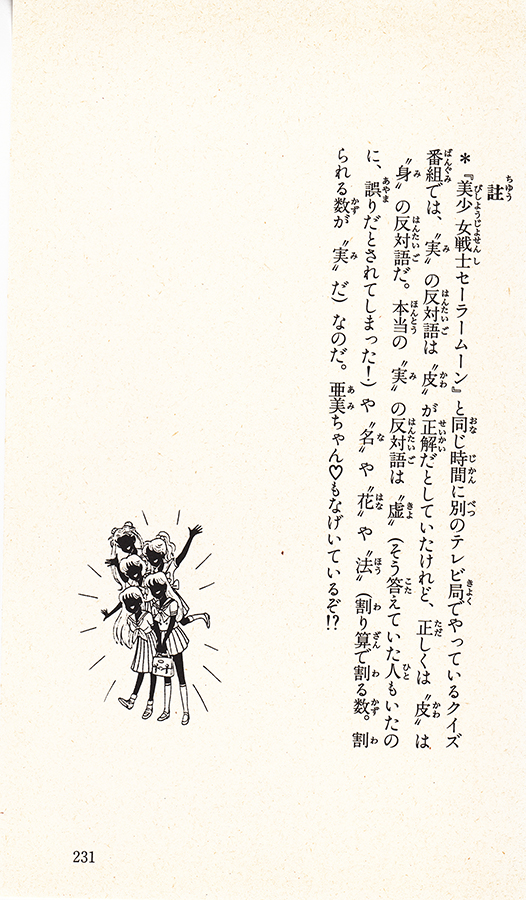 註
＊『美少女戦士セーラームーン』と同じ時間に別のテレビ局でやっているクイズ
番組では、〝実〟の反対語は〝皮〟が正解だとしていたけれど、正しくは〝皮〟は
〝身〟の反対語だ。本当の〝実〟の反対語は〝虚〟（そう答えていた人もいたの
に、誤りだとされてしまった！）や〝名〟や〝花〟や〝法〟（割り算で割る数。割
られる数が〝実〟だ）なのだ。亜美ちゃん♡もなげいているぞ!?
231